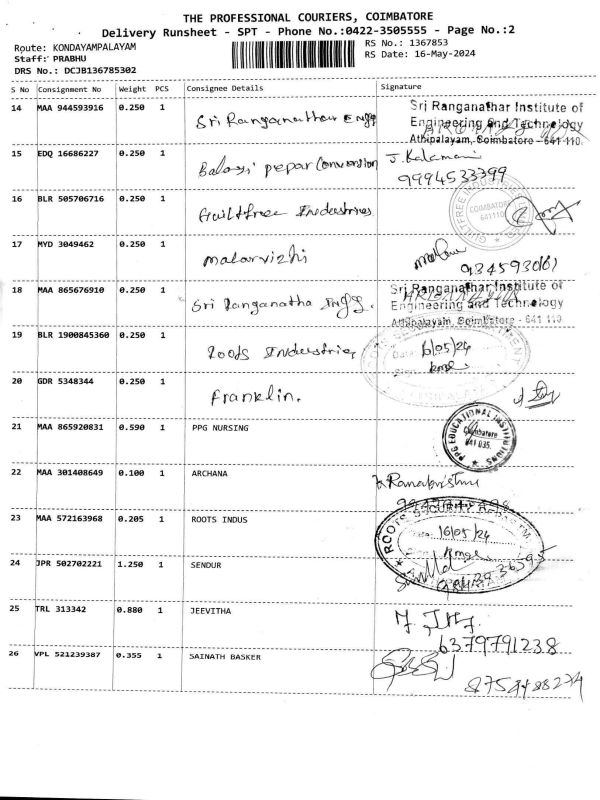 THE PROFESSIONAL COURIERS, COIMBATORE
Delivery Runsheet - SPT - Phone No.:0422-3505555 - Page No.:2
Route: KONDAYAMPALAYAM
RS No.: 1367853
Staff: PRABHU
RS Date: 16-May-2024
DRS No.: DCJB136785302
S No Consignment No Weight PCS Consignee Details Signature
14 MAA 944593916 0.250 1 Sri Ranganathar Engg
Sri Ranganathar Institute of
Engineering and Technology
Athipalayam, Coimbatore - 641 110
15 EDQ 16686227 0.250 1 Balaji pepar Conversion J. Kalamani
9994533399
16 BLR 505706716 0.250 1 Guiltfree Industries
GUILTFREE INDUSTRIES
COIMBATORE
641110
17 MYD 3049462 0.250 1 malarvizhi
18 MAA 865676910 0.250 1 Sri Ranganatha Engg.
Sri Ranganathar Institute of
Engineering and Technology
Athipalayam, Coimbatore - 641 110
19 BLR 1900845360 0.250 1 Roots Industries
Date: 16/05/24
Sign:
20 GDR 5348344 0.250 1 Franklin.
21 MAA 865920831 0.590 1 PPG NURSING
PPG EDUCATIONAL INSTITUTIONS
Coimbatore
641 035.
22 MAA 301408649 0.100 1 ARCHANA
23 MAA 572163968 0.205 1 ROOTS INDUS
ROOTS SECURITY
Date: 16/05/24
24 JPR 502702221 1.250 1 SENDUR
25 TRL 313342 0.880 1 JEEVITHA
6379791238
26 VPL 521239387 0.355 1 SAINATH BASKER